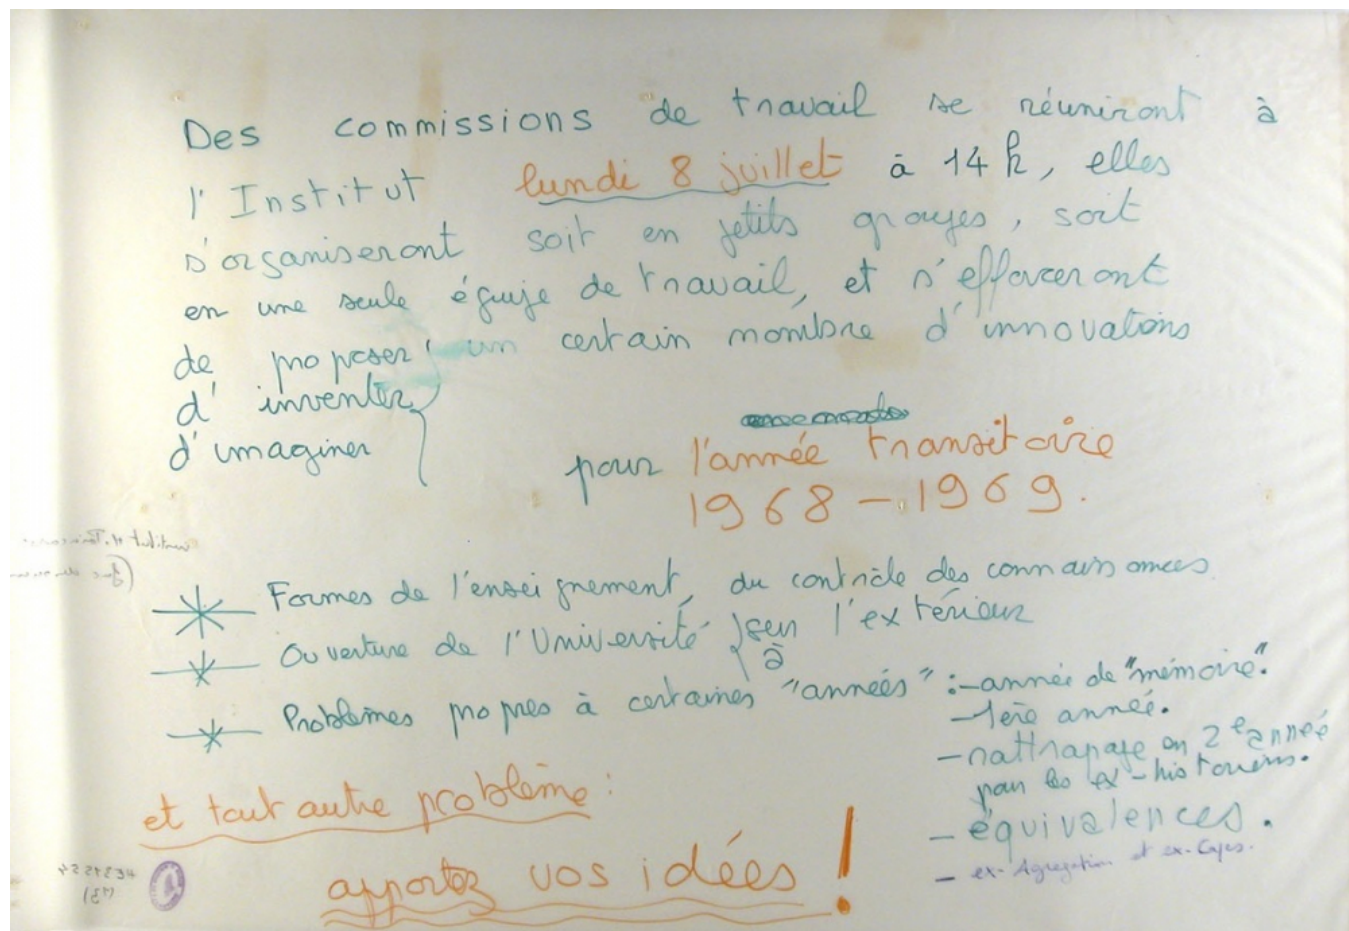 Des commissions de travail se réuniront à
l'Institut lundi 8 juillet à 14 h, elles
s'organiseront soit en petits groupes, soit
en une seule équipe de travail, et s'efforceront
de proposer un certain nombre d'innovations
d'inventer
d'imaginer
pour l'année transitoire
1968-1969.
Formes de l'enseignement, du contrôle des connaissances
Ouverture de l'Université sur l'extérieur
à
Problèmes propres à certaines "années" : - année de "mémoire".
- 1ère année.
- rattrapage en 2e année
pour les ex-historiens.
- équivalences.
- ex-Agrégation et ex-Capes.
et tout autre problème :
apportez vos idées !